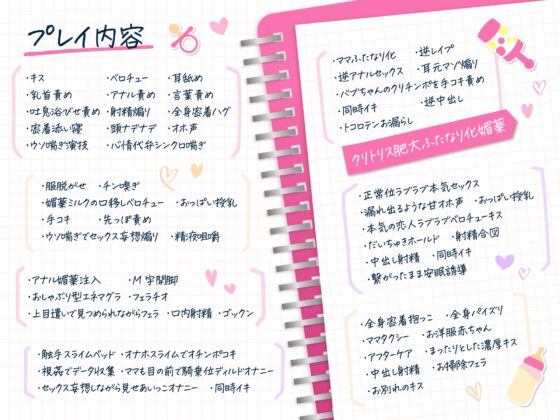 プレイ内容
・キス ・ベロチュー ・耳舐め
・乳首責め ・アナル責め ・言葉責め
・吐息浴びせ責め ・射精煽り ・全身密着ハグ
・密着添い寝 ・頭ナデナデ ・オホ声
・ウソ喘ぎ演技 ・心情代弁シンクロ喘ぎ
・服脱がせ ・チン嗅ぎ
・媚薬ミルクの口移しベロチュー ・おっぱい授乳
・手コキ ・先っぽ責め
・ウソ喘ぎでセックス妄想煽り ・精液咀嚼
・アナル媚薬注入 ・M字開脚
・おしゃぶり型エネマグラ ・フェラチオ
・上目遣いで見つめられながらフェラ ・口内射精 ・ゴックン
・触手スライムベッド ・オナホスライムでオチンポコキ
・視姦でデータ収集 ・ママも目の前で騎乗位ディルドオナニー
・セックス妄想しながら見せあいっこオナニー ・同時イキ
・ママふたなり化 ・逆レイプ
・逆アナルセックス ・耳元マゾ煽り
・バブちゃんのクリチンポを手コキ責め
・同時イキ ・逆中出し
・トコロテンお漏らし
クリトリス肥大ふたなり化媚薬
・正常位ラブラブ本気セックス
・漏れ出るような甘オホ声 ・おっぱい授乳
・本気の恋人ラブラブベロチューキス
・だいちゅきホールド ・射精合図
・中出し射精 ・同時イキ
・繋がったまま安眠誘導
・全身密着抱っこ ・全身パイズリ
・ママタクシー ・お洋服赤ちゃん
・アフターケア ・まったりとした濃厚キス
・中出し射精 ・お掃除フェラ
・お別れのキス